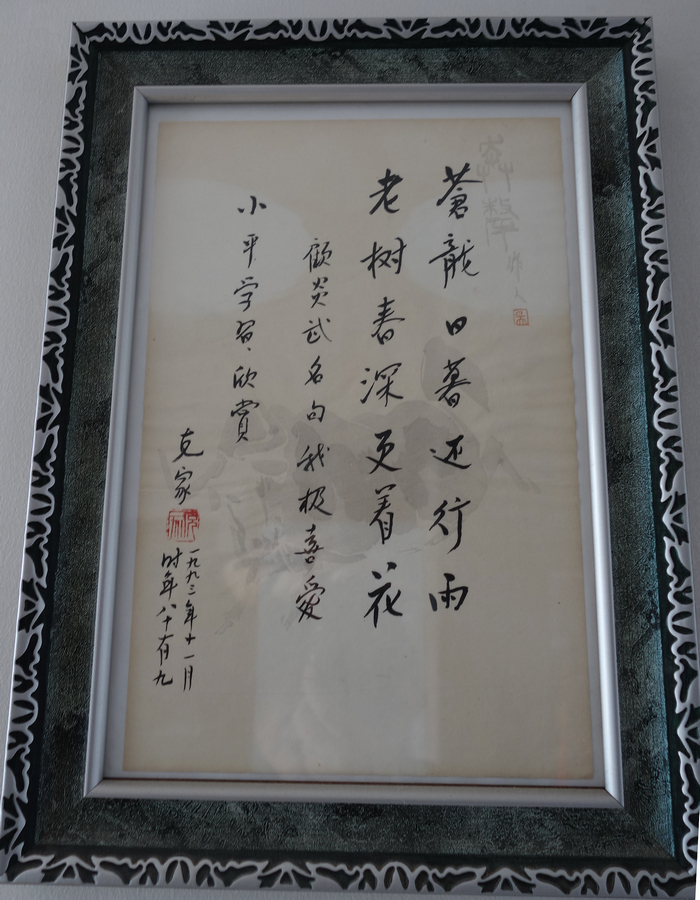 作人
蒼龍日暮还行雨
老树春深更着花
顾炎武名句我极喜愛
小平学習、欣賞
克家
一九九三年十一月
时年八十有九